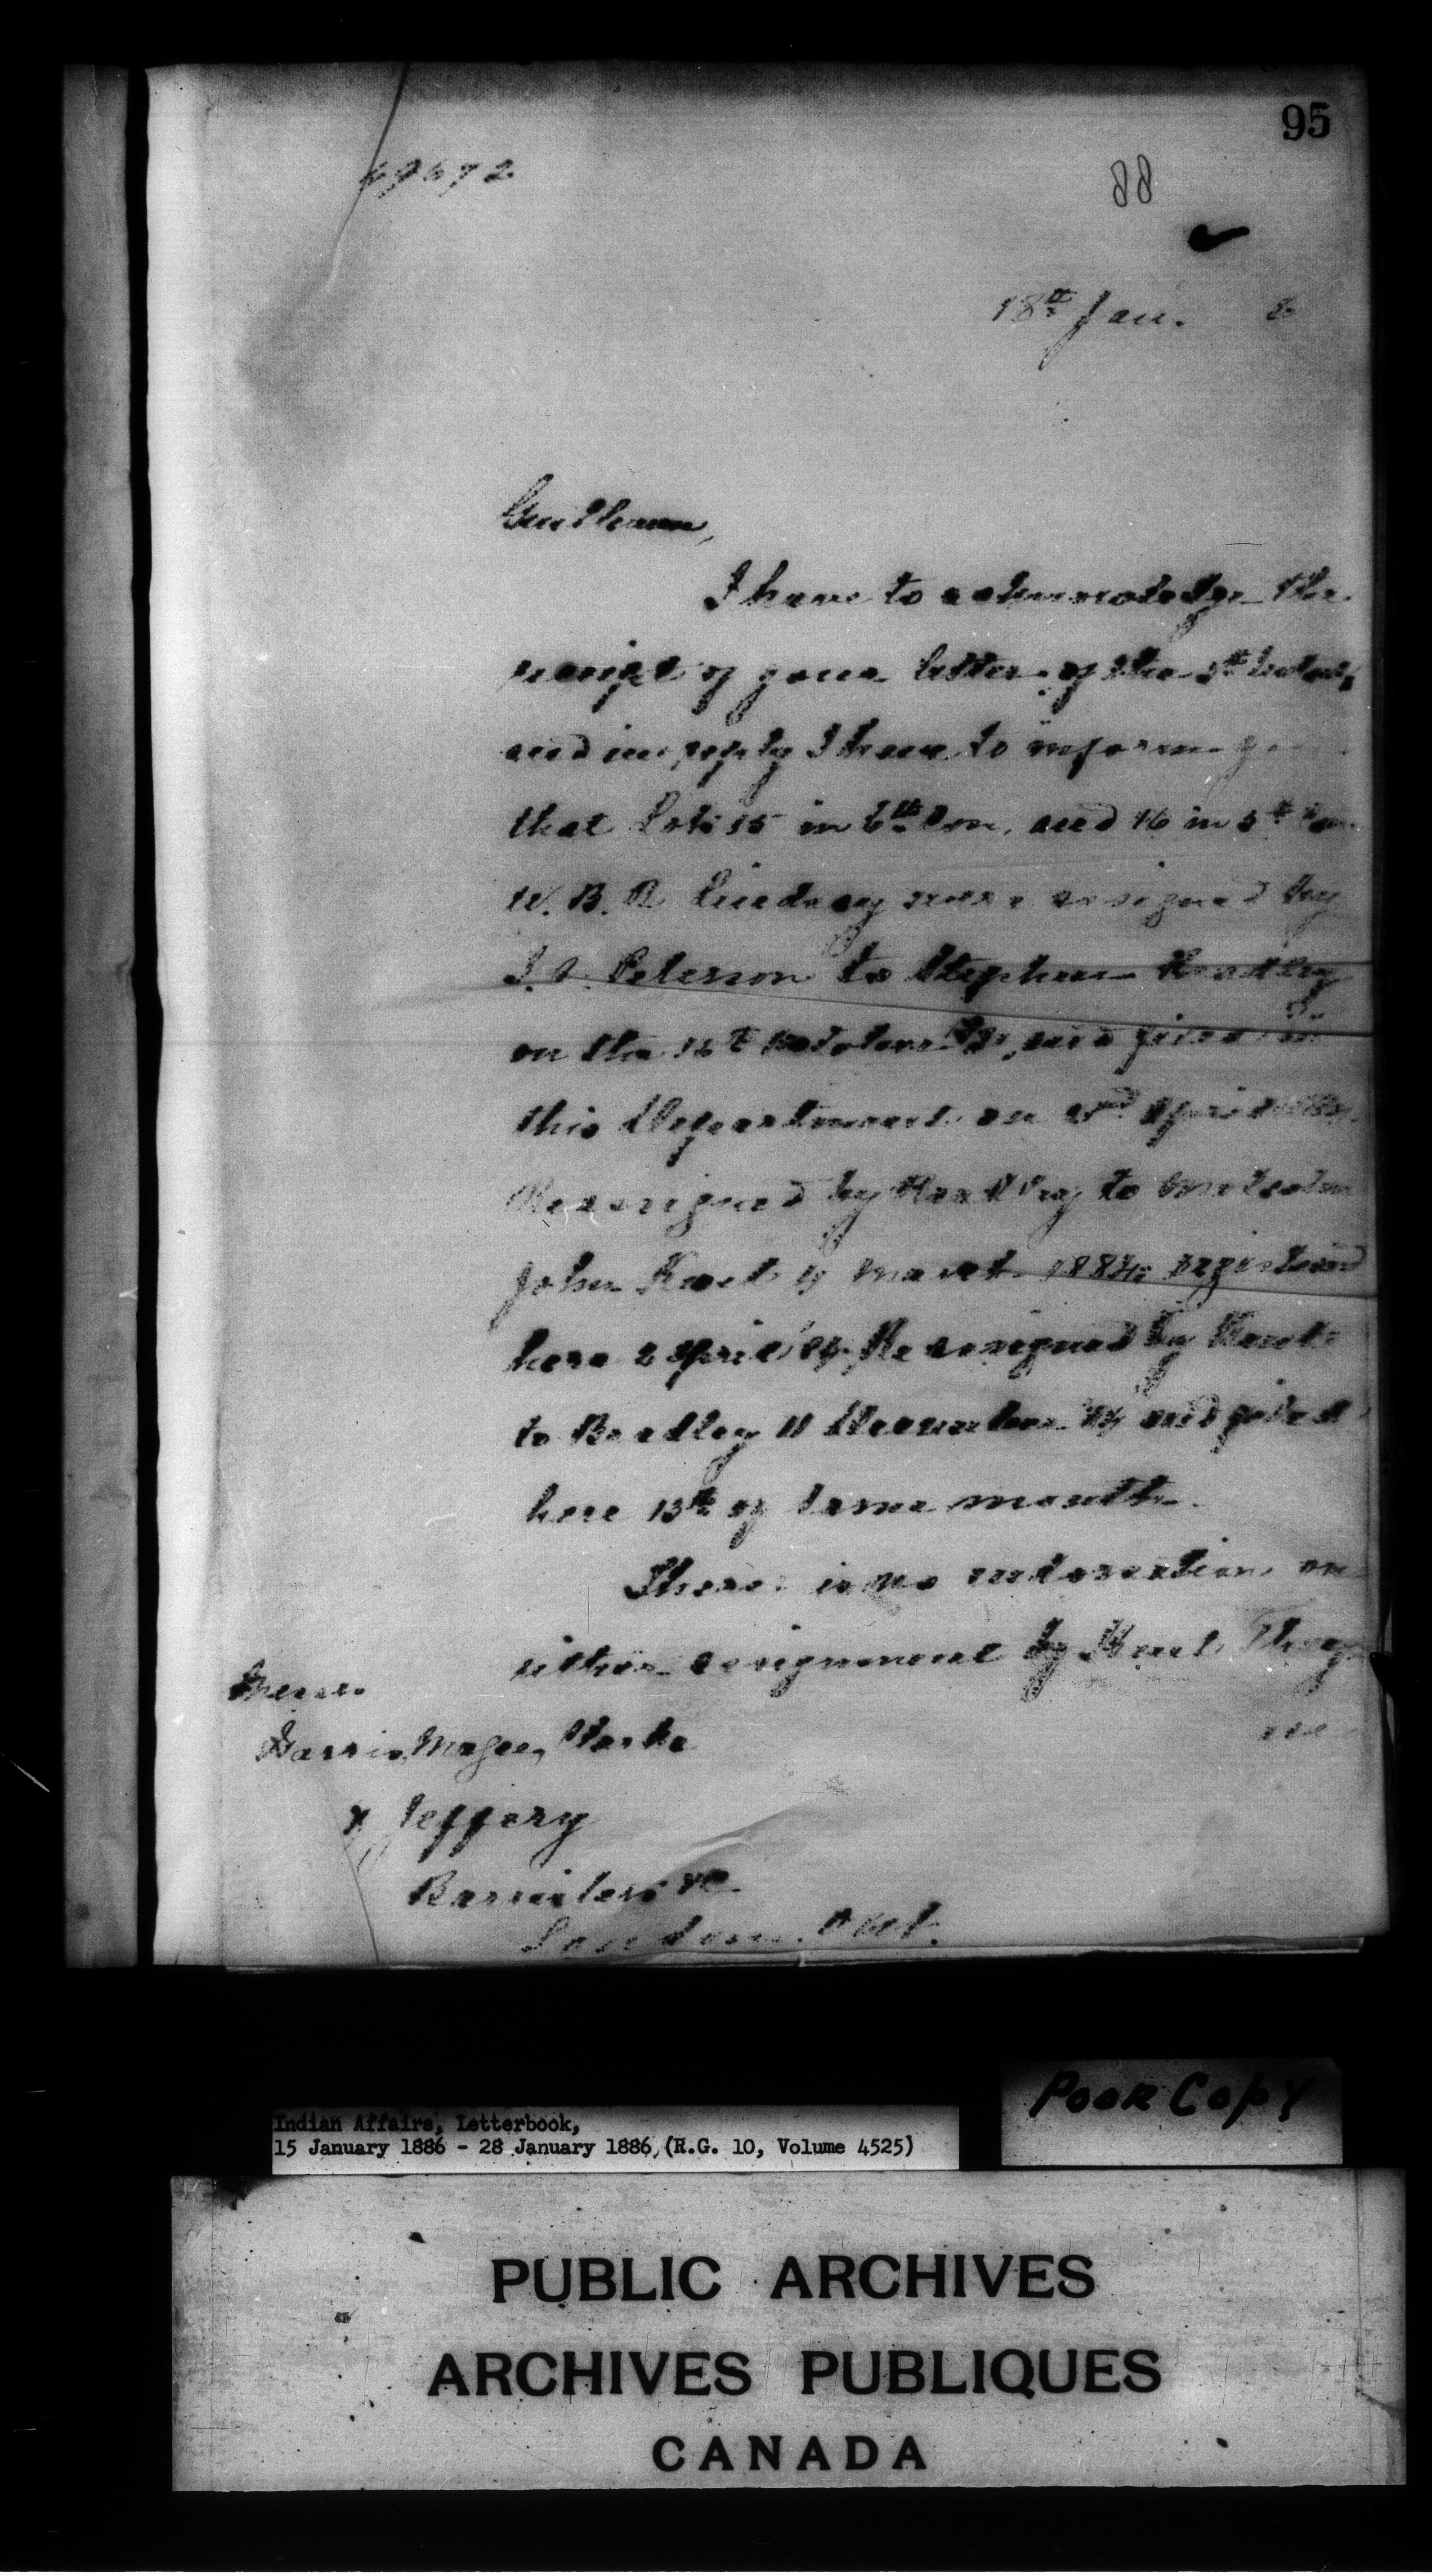 95
69672
88
18th Jan. 6
Gentlemen,
I have to acknowledge the
receipt of your letter of the 5th instant,
and in reply I have to inform
that Lots 15 in 6th Con. and 16 in 5th Con.
W. B. R. Lindsay were assigned by
Peterson to Stephen Bradley
on the and filed in
this Department on April
Reassigned by Bradley to Malcolm
John Kent March 1884, registered
here 2 April '84, Reassigned by Kent
to Bradley 11 December '84 and filed
here 13th of same month.
There is no endorsation on
either assignment by Kent. They
Messrs.
Harris, Magee, Clarke
& Jeffery
Barristers &c
London. Ont.
Poor Copy
Indian Affairs, Letterbook,
15 January 1886 - 28 January 1886, (R.G. 10, Volume 4525)
PUBLIC ARCHIVES
ARCHIVES PUBLIQUES
CANADA